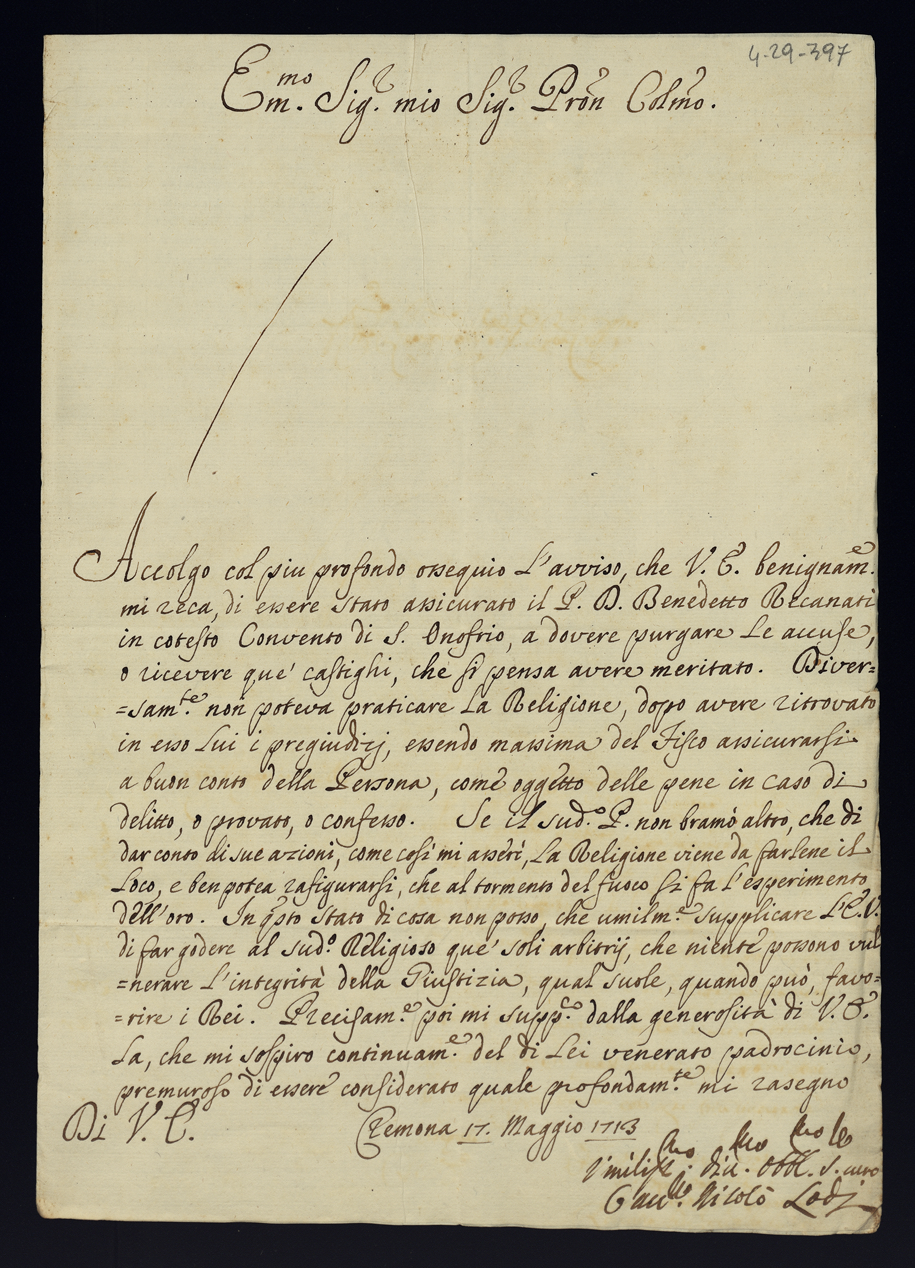 4-29-397
Em.mo Sig.r mio Sig.r Pron Colmo.
Accolgo col piu profondo ossequio L'avviso, che V. E. benignam.e
mi reca, di essere stato assicurato il P. D. Benedetto Recanati
in cotesto Convento di S. Onofrio, a dovere purgare Le accuse,
o ricevere que' castighi, che si pensa avere meritato. Diver=
=sam.te non poteva praticare La Religione, dopo avere ritrovato
in esso Lui i pregiudizj, essendo massima del Fisco assicurarsi
a buon conto della Persona, come oggetto delle pene in caso di
delitto, o provato, o confesso. Se il sud.o P. non bramò altro, che di
dar conto di sue azioni, come così mi asserì, La Religione viene da farsene il
Loco, e ben potea rafigurarsi, che al tormento del fuoco si fa l'esperimento
dell'oro. In q̃sto stato di cosa non posso, che umilm.e supplicare L'E.V.
di far godere al sud.o Religioso que' soli arbitrij, che niente possono vul
=nerare L'integrità della Giustizia, qual suole, quando può, favo=
=rire i Rei. Precisam.e poi mi supp.co dalla generosità di V. E.
La, che mi sospiro continuam.e del di Lei venerato padrocinio,
premuroso di essere considerato quale profondam.te mi rasegno
Di V. E. Cremona 17. Maggio 1713
Umiliss.mo div.mo obbl.mo
Nicolò Lodi